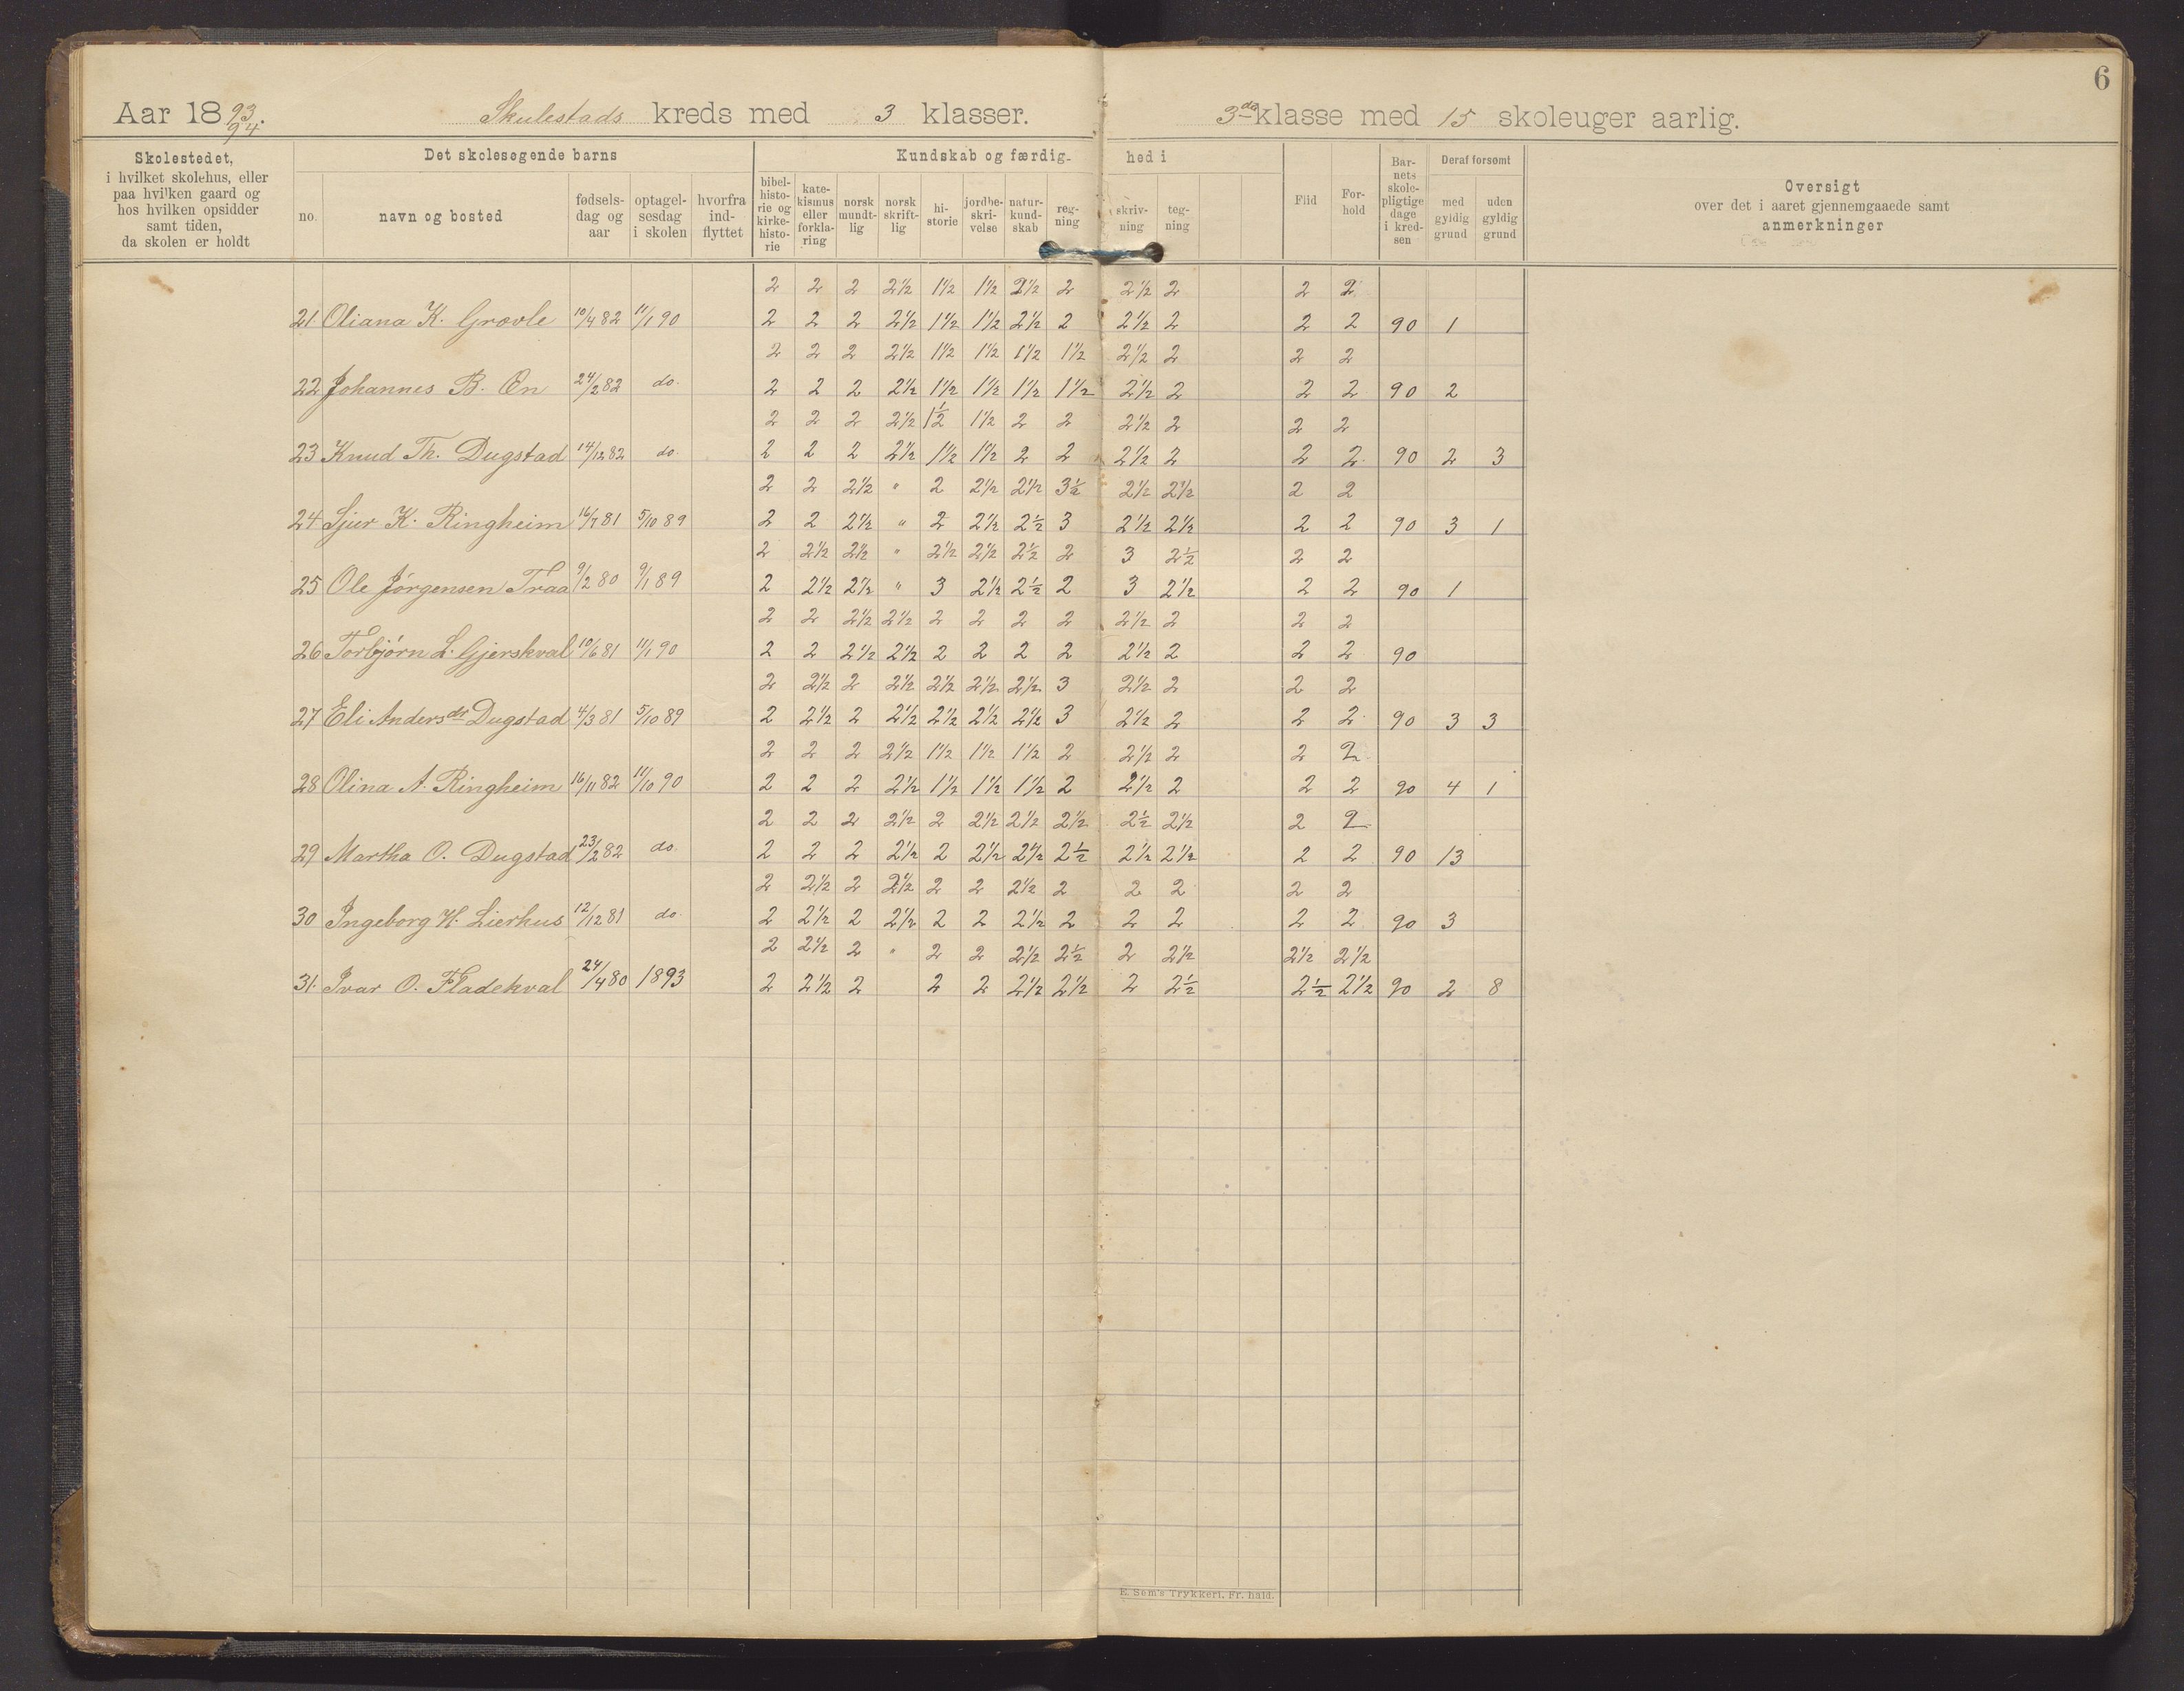 6
Aar 1893/94. Skulestads kreds med 3 klasser. 3die klasse med 15 skoleuger aarlig.
Skolestedet, i hvilket skolehus, eller paa hvilken gaard og hos hvilken opsidder samt tiden, da skolen er holdt
Det skolesøgende barns
no. navn og bosted fødsels-dag og aar optagel-sesdag i skolen hvorfra ind-flyttet
Kundskab og færdig-hed i
bibel-histo-rie og kirke-histo-rie kate-kismus eller forkla-ring norsk mundt-lig norsk skrift-lig hi-storie jordbe-skri-velse natur-kund-skab reg-ning skriv-ning teg-ning
Flid For-hold Bar-nets skole-pligtige dage i kred-sen
Deraf forsømt
med gyldig grund uden gyldig grund
Oversigt over det i aaret gjennemgaaede samt anmerkninger
2 2 2 2½ 1½ 1½ 2½ 2 2½ 2 2 2
21. Oliana K. Grovle 10/4 82 11/1 90 2 2 2 2½ 1½ 1½ 2½ 2 2½ 2 2 2 90 1
2 2 2 2½ 1½ 1½ 1½ 1½ 2½ 2 2 2
22 Johannes B. Øn 24/2 82 do. 2 2 2 2½ 1½ 1½ 1½ 1½ 2½ 2 2 2 90 2
2 2 2 2½ 1½ 1½ 2 2 2½ 2 2 2
23 Knud Th. Dugstad 14/12 82 do. 2 2 2 2½ 1½ 1½ 2 2 2½ 2 2 2 90 2 3
2 2 2½ " 2 2½ 2½ 3½ 2½ 2½ 2 2
24 Sjur K. Ringheim 16/7 81 5/10 89 2 2 2½ " 2 2½ 2½ 3 2½ 2½ 2 2 90 3 1
2 2½ 2½ " 2½ 2½ 2½ 2 3 2½ 2 2
25 Ole Jørgensen Traa 9/2 80 9/1 89 2 2½ 2½ " 3 2½ 2½ 2 3 2½ 2 2 90 1
2 2 2½ 2½ 2 2 2 2 2½ 2 2 2
26 Torbjørn L. Gjerskval 10/6 81 11/1 90 2 2 2½ 2½ 2 2 2 2 2½ 2 2 2 90
2 2½ 2 2½ 2½ 2½ 2½ 3 2½ 2 2 2
27 Eli Andersdr Dugstad 4/3 81 5/10 89 2 2½ 2 2½ 2½ 2½ 2½ 3 2½ 2 2 2 90 3 3
2 2 2 2½ 1½ 1½ 1½ 2 2½ 2 2 2
28 Olina A. Ringheim 16/11 82 11/10 90 2 2 2 2½ 1½ 1½ 1½ 2 2½ 2 2 2 90 4 1
2 2 2 2½ 2 2½ 2½ 2½ 2½ 2½ 2 2
29 Martha O. Dugstad 23/2 82 do. 2 2 2 2½ 2 2½ 2½ 2½ 2½ 2½ 2 2 90 13
2 2½ 2 2½ 2 2 2½ 2 2 2 2 2
30 Ingeborg H. Lierhus 12/12 81 do. 2 2½ 2 2½ 2 2 2½ 2 2 2 2 2 90 3
2 2½ 2 " 2 2 2½ 2½ 2 2½ 2½ 2½
31. Ivar O. Fladekval 24/4 80 1893 2 2½ 2 2 2 2½ 2½ 2 2½ 2½ 2½ 90 2 8
E. Sem's Trykkeri, Fr.hald.